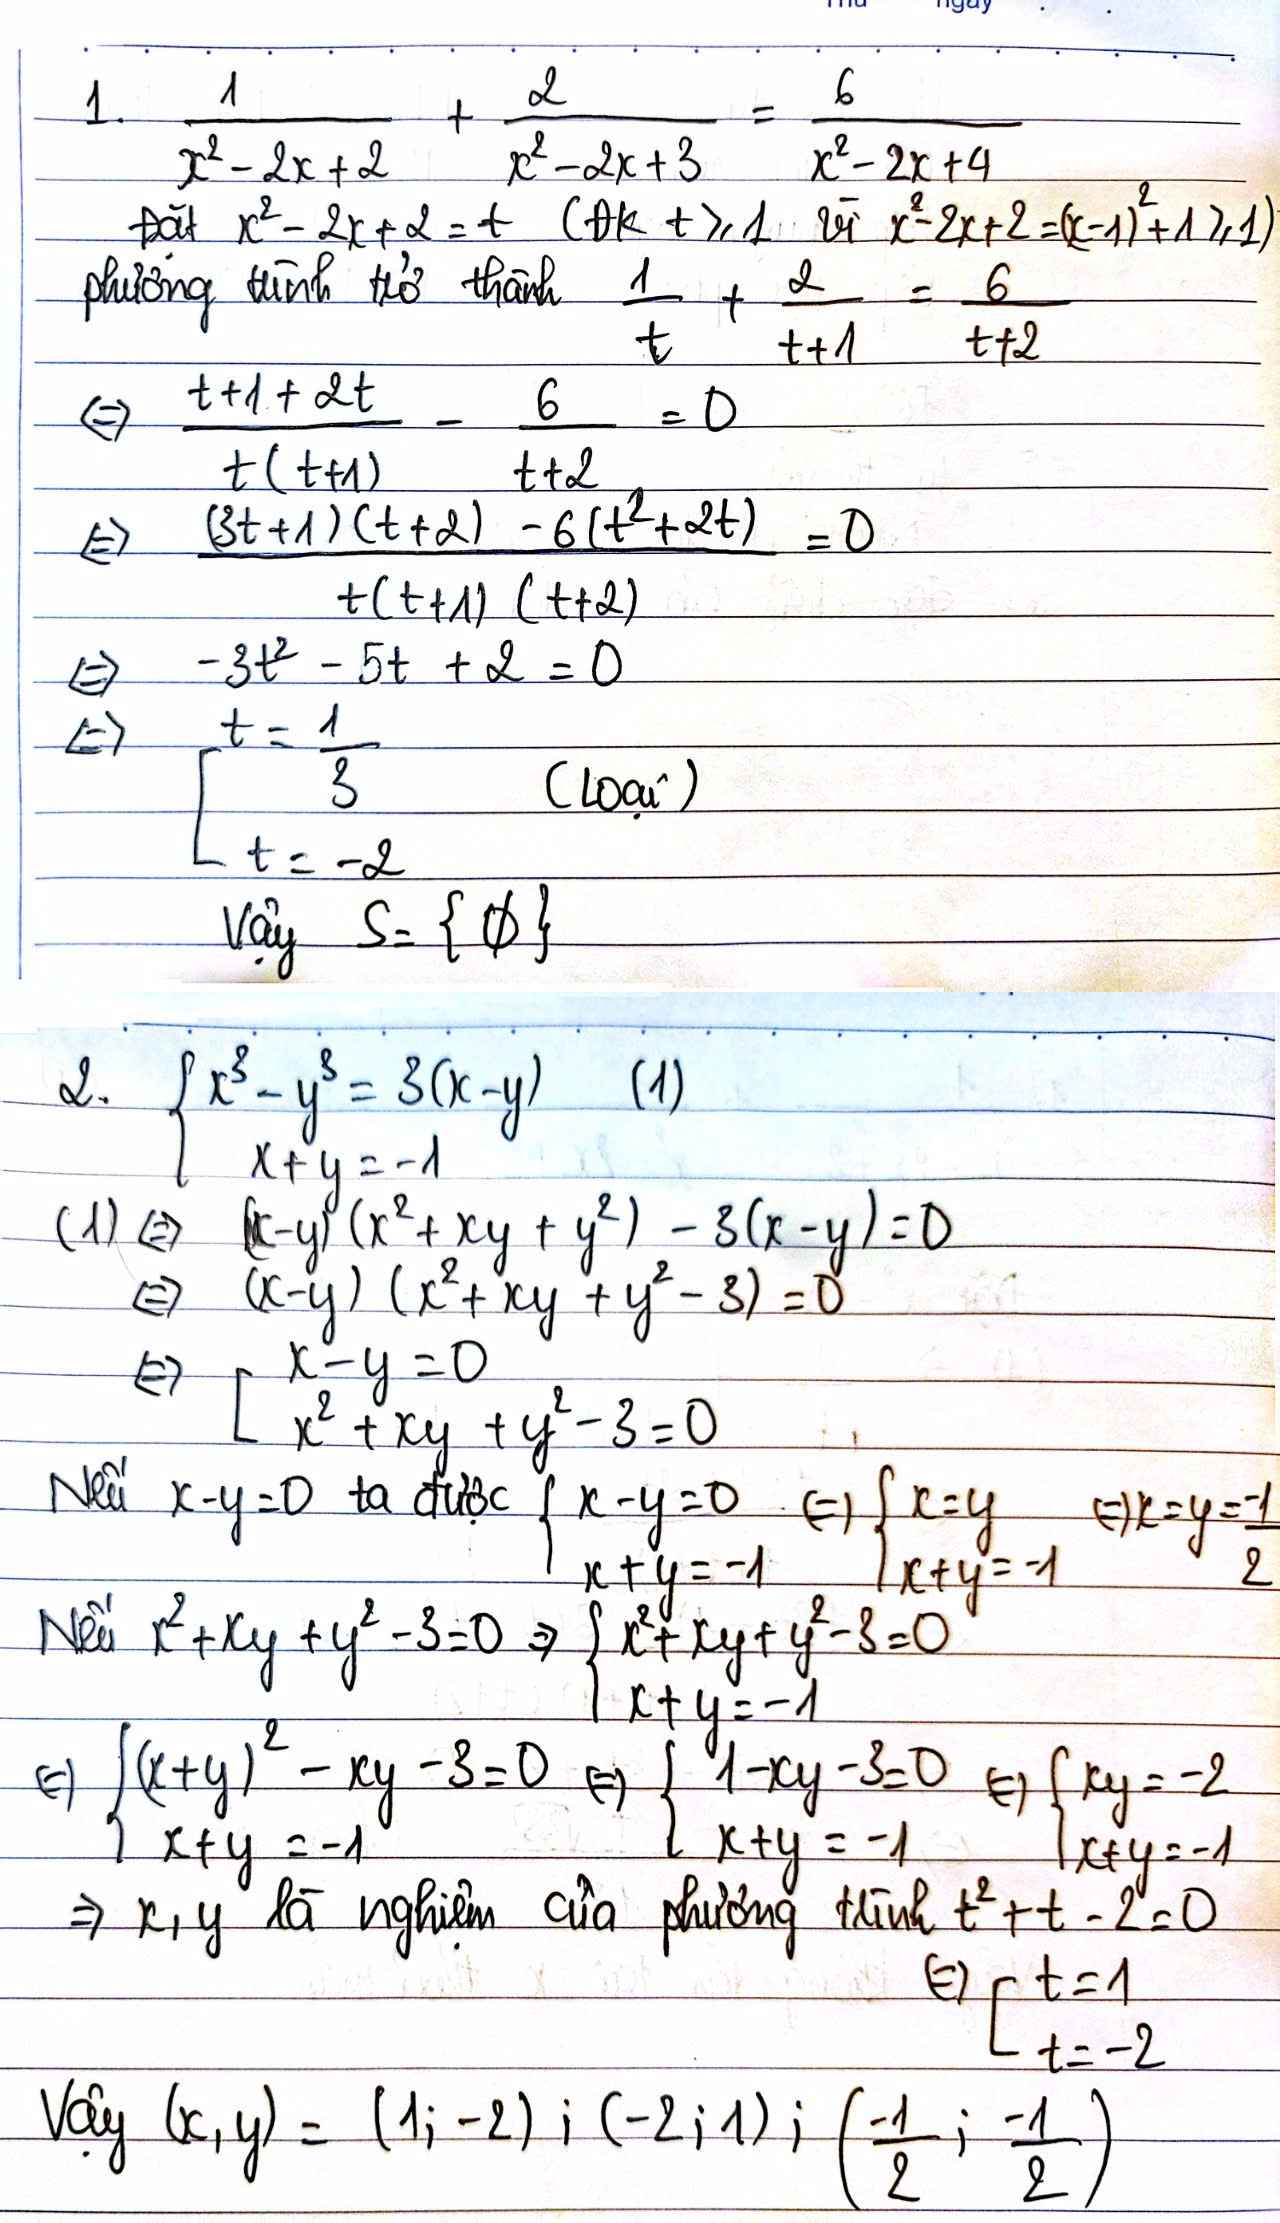 Thứ ngày . .
1. 1/(x² - 2x + 2) + 2/(x² - 2x + 3) = 6/(x² - 2x + 4)
Đặt x² - 2x + 2 = t (ĐK t ⩾ 1 vì x² - 2x + 2 = (x-1)² + 1 ⩾ 1)
phương trình trở thành 1/t + 2/(t+1) = 6/(t+2)
⇔ (t+1+2t)/(t(t+1)) - 6/(t+2) = 0
⇔ ((3t+1)(t+2) - 6(t²+2t))/(t(t+1)(t+2)) = 0
⇔ -3t² - 5t + 2 = 0
⇔ [ t = 1/3
(Loại)
t = -2
Vậy S = {∅}
2. { x³ - y³ = 3(x-y) (1)
x + y = -1
(1) ⇔ (x-y)(x² + xy + y²) - 3(x-y) = 0
⇔ (x-y)(x² + xy + y² - 3) = 0
⇔ [ x - y = 0
x² + xy + y² - 3 = 0
Nếu x-y=0 ta được { x - y = 0 ⇔ { x = y ⇔ x = y = -1/2
x + y = -1 x + y = -1
Nếu x² + xy + y² - 3 = 0 ⇒ { x² + xy + y² - 3 = 0
x + y = -1
⇔ { (x+y)² - xy - 3 = 0 ⇔ { 1 - xy - 3 = 0 ⇔ { xy = -2
x + y = -1 x + y = -1 x + y = -1
⇒ x, y là nghiệm của phương trình t² + t - 2 = 0
⇔ [ t = 1
t = -2
Vậy (x, y) = (1; -2) ; (-2; 1) ; (-1/2 ; -1/2)